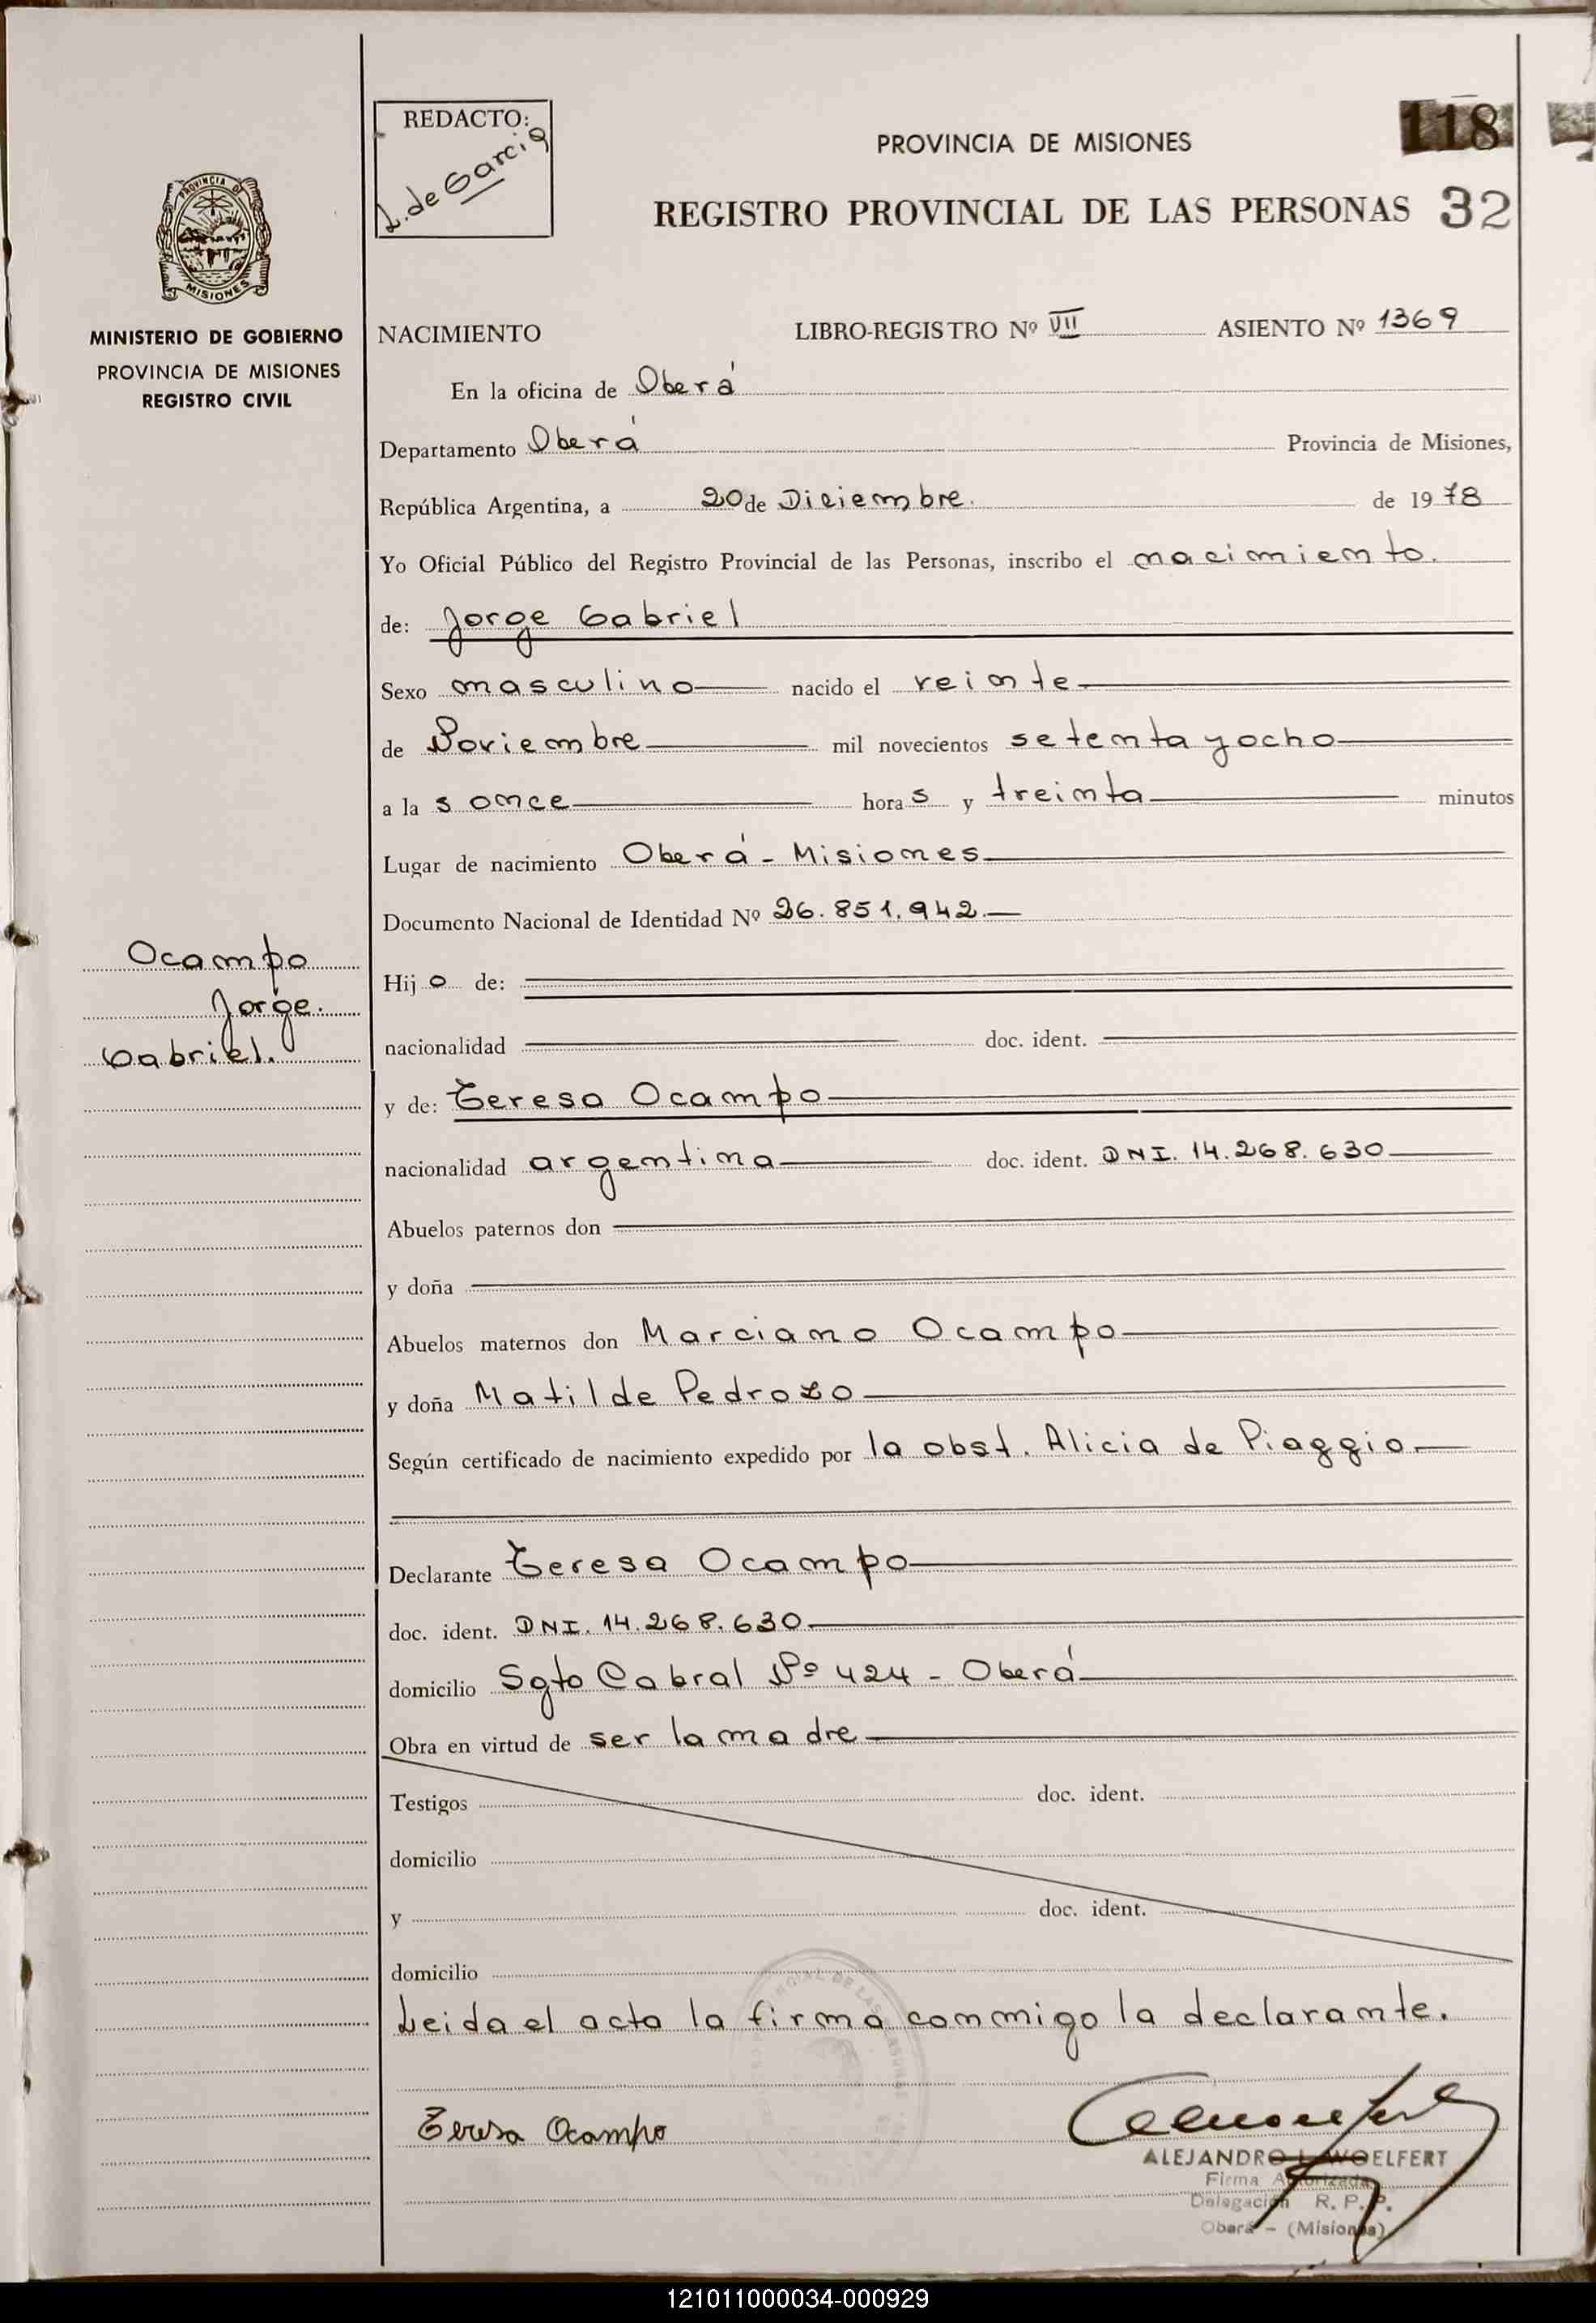 REDACTO:
L. de Garcia
PROVINCIA DE MISIONES
118
REGISTRO PROVINCIAL DE LAS PERSONAS 32
PROVINCIA DE
MISIONES
MINISTERIO DE GOBIERNO
PROVINCIA DE MISIONES
REGISTRO CIVIL
NACIMIENTO LIBRO-REGISTRO Nº VII ASIENTO Nº 1369
En la oficina de Oberá
Departamento Oberá Provincia de Misiones,
República Argentina, a 20 de Diciembre. de 1978
Yo Oficial Público del Registro Provincial de las Personas, inscribo el nacimiento.
de: Jorge Gabriel
Sexo masculino nacido el veinte
de Noviembre mil novecientos setenta y ocho
a las once horas y treinta minutos
Lugar de nacimiento Oberá - Misiones
Documento Nacional de Identidad Nº 26.851.942.
Ocampo
Jorge.
Gabriel.
Hijo de:
nacionalidad doc. ident.
y de: Teresa Ocampo
nacionalidad argentina doc. ident. DNI. 14.268.630
Abuelos paternos don
y doña
Abuelos maternos don Marciano Ocampo
y doña Matilde Pedrozo
Según certificado de nacimiento expedido por la obst. Alicia de Piaggio.
Declarante Teresa Ocampo
doc. ident. DNI. 14.268.630
domicilio Sgto Cabral Nº 424 - Oberá
Obra en virtud de ser la madre
Testigos doc. ident.
domicilio
y doc. ident.
domicilio
Leida el acta la firma conmigo la declarante.
Teresa Ocampo
ALEJANDRO L. WOELFERT
Firma Autorizada
Delegación R. P. P.
Oberá - (Misiones)
121011000034-000929